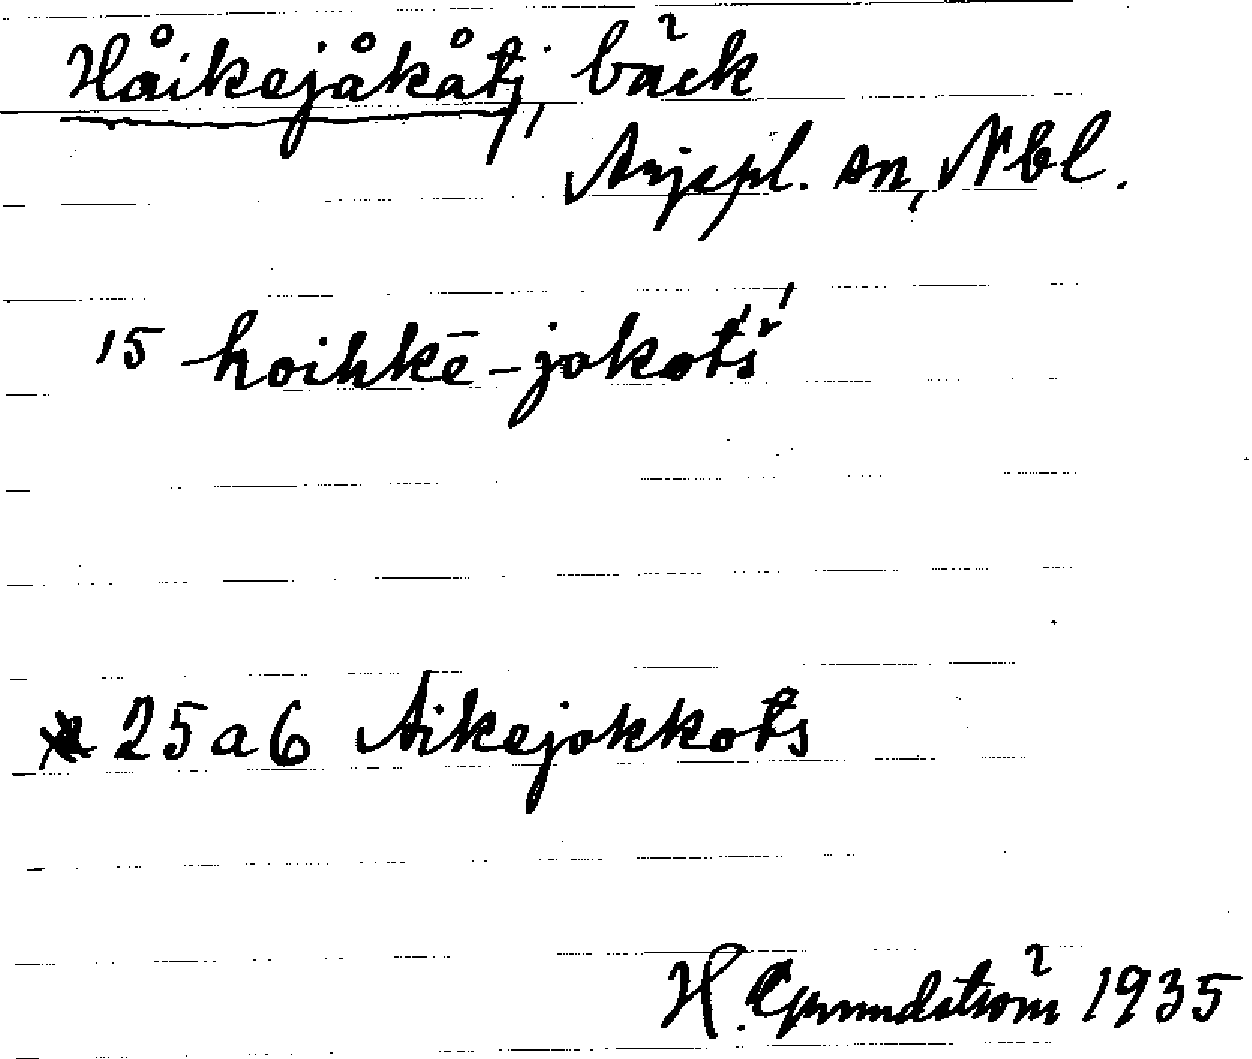 Håikejåkåtj, bäck
Arjepl. sn, Nbl.
15 hoihkē-jokot́š́'
25a6 Aikejokkots
H. Grundström 1935